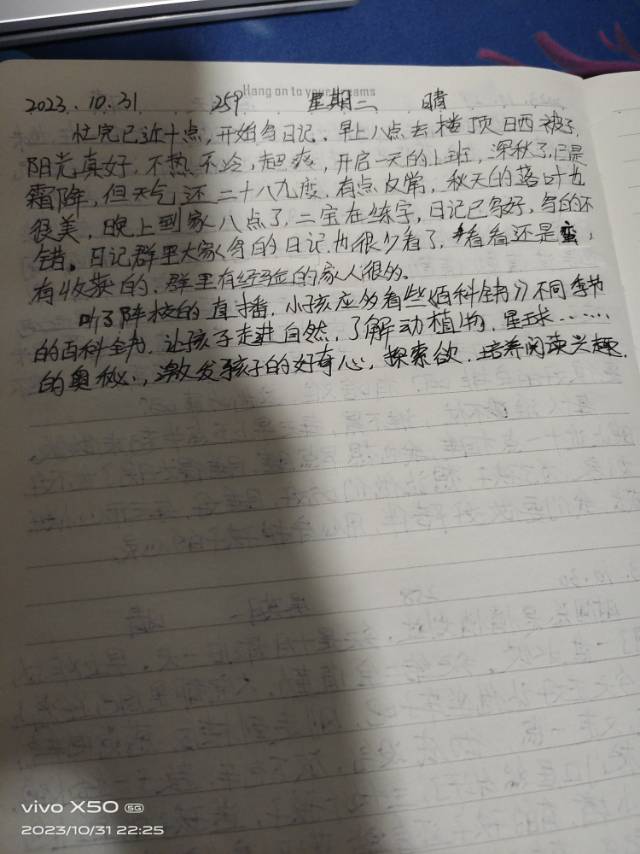 Hang on to your dreams
2023.10.31 259 星期二 晴
忙完已近十点,开始写日记。早上八点去楼顶晒被子,
阳光真好,不热不冷,开启一天的上班,深秋了,已是
霜降,但天气还二十八九度,有点反常,秋天的落叶也
很美,晚上到家八点了,二宝在练字,日记已写好,写的不
错。日记群里大家写的日记也很少看了,看看还是蛮
有收获的,群里有经验的家人很多。
听了阵校的直播,小孩应多看些《百科全书》不同季节
的百科全书,让孩子走进自然,了解动植物,星球……
的奥秘,激发孩子的好奇心,探索欲,培养阅读兴趣。
vivo X50 5G
2023/10/31 22:25